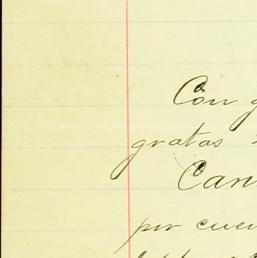 Con
gratas
Can
por cuen